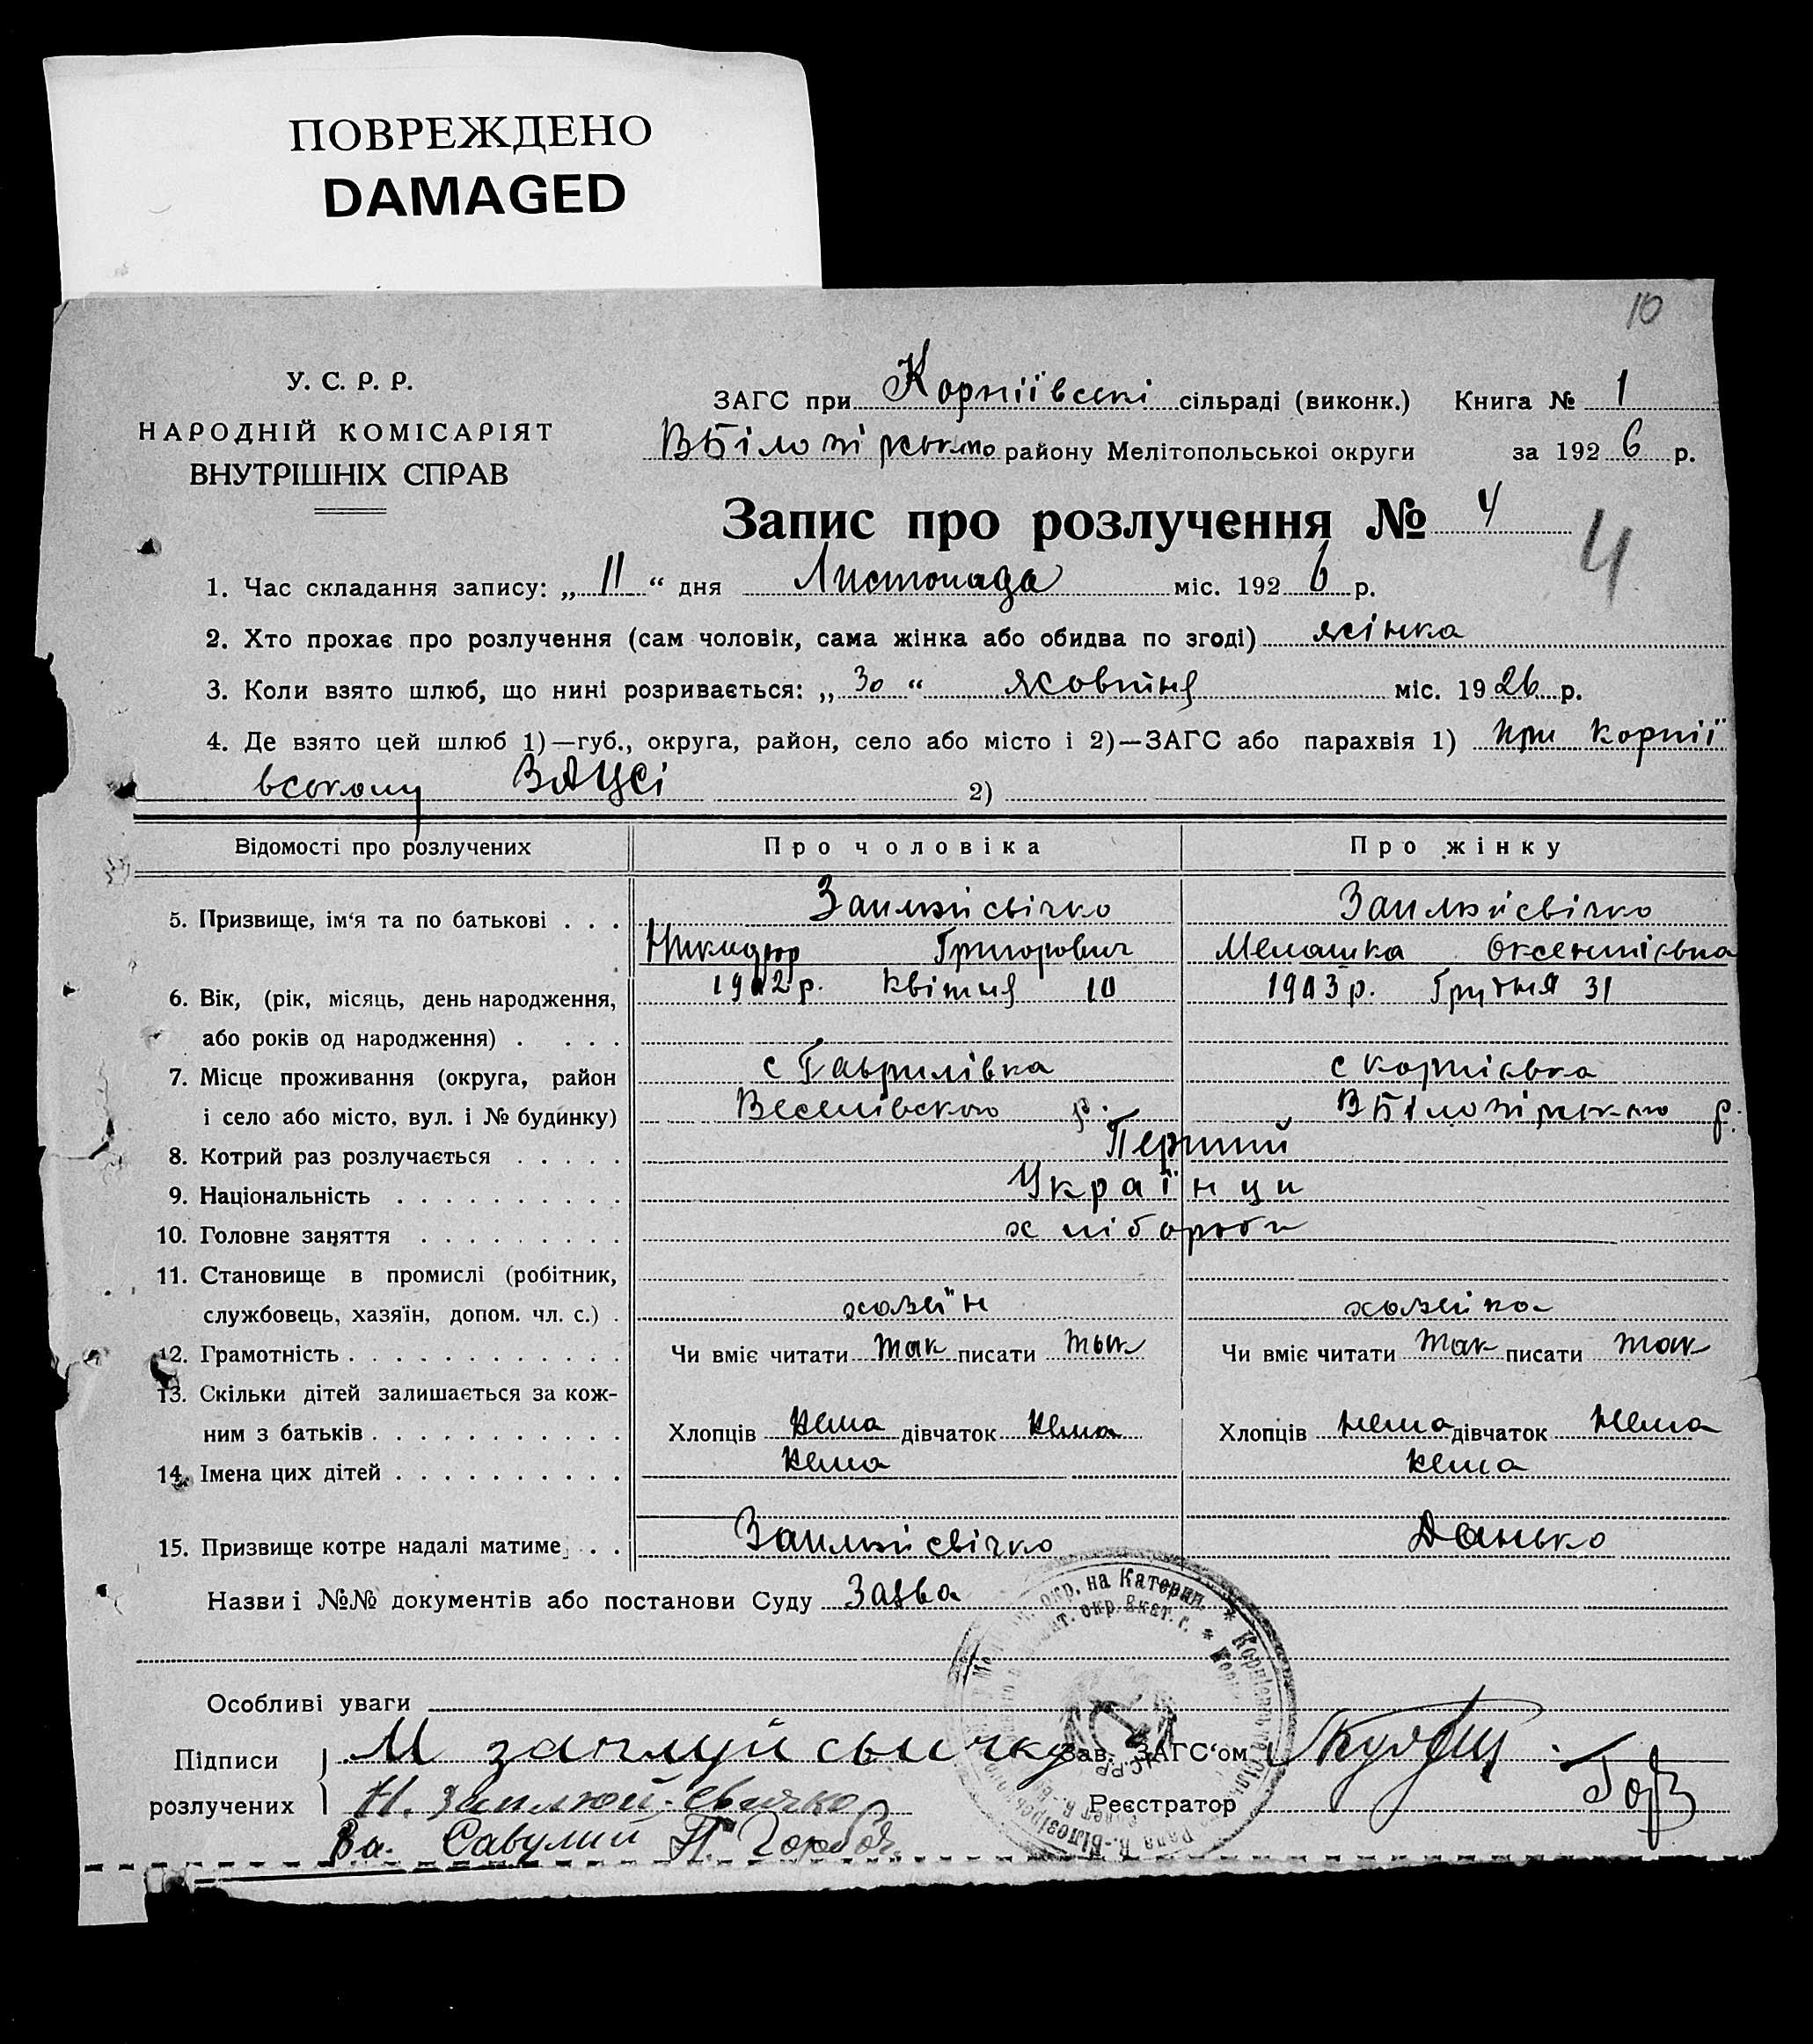 ПОВРЕЖДЕНО
DAMAGED
10
У. С. Р. Р.
НАРОДНІЙ КОМІСАРІЯТ
ВНУТРІШНІХ СПРАВ
ЗАГС при Корніївскі сільраді (виконк.) Книга № 1
ВБілозірського району Мелітопольської округи за 1926 р.
Запис про розлучення № 4
4
1. Час складання запису: „11“ дня Листопада міс. 1926 р.
2. Хто прохає про розлучення (сам чоловік, сама жінка або обидва по згоді) жінка
3. Коли взято шлюб, що нині розривається: „30“ жовтня міс. 1926 р.
4. Де взято цей шлюб 1)—губ., округа, район, село або місто і 2)—ЗАГС або парахвія 1) при Корнії
вському ЗАЦСі 2)
Відомості про розлучених Про чоловіка Про жінку
5. Призвище, ім‘я та по батькові . . . Заплюйсвічко Заплюйсвічко
Григорович Мелашка Оксентіївна
6. Вік, (рік, місяць, день народження, 1902р. квітня 10 1903р. Грудня 31
або років од народження) . . . .
7. Місце проживання (округа, район с Гаврилівка с Корніївка
і село або місто, вул. і № будинку) Веселівского р. ВБілозірського р.
8. Котрий раз розлучається . . . . . Перший
9. Національність . . . . . . . . . . Українци
10. Головне заняття . . . . . . . . . хлібороби
11. Становище в промислі (робітник,
службовець, хазяїн, допом. чл. с.) . хозяїн хозяйка
12. Грамотність . . . . . . . . . . . . Чи вміє читати так писати так Чи вміє читати так писати так
13. Скільки дітей залишається за кож-
ним з батьків . . . . . . . . . . . Хлопців нема дівчаток нема Хлопців нема дівчаток нема
14. Імена цих дітей . . . . . . . . . . нема нема
15. Призвище котре надалі матиме . . Заплюйсвічко Данько
Назви і №№ документів або постанови Суду Заява
Особливі уваги
Підписи М заплуйсвичко Зав. ЗАГС‘ом
розлучених Н. Заплюй-Свичко Реєстратор
За